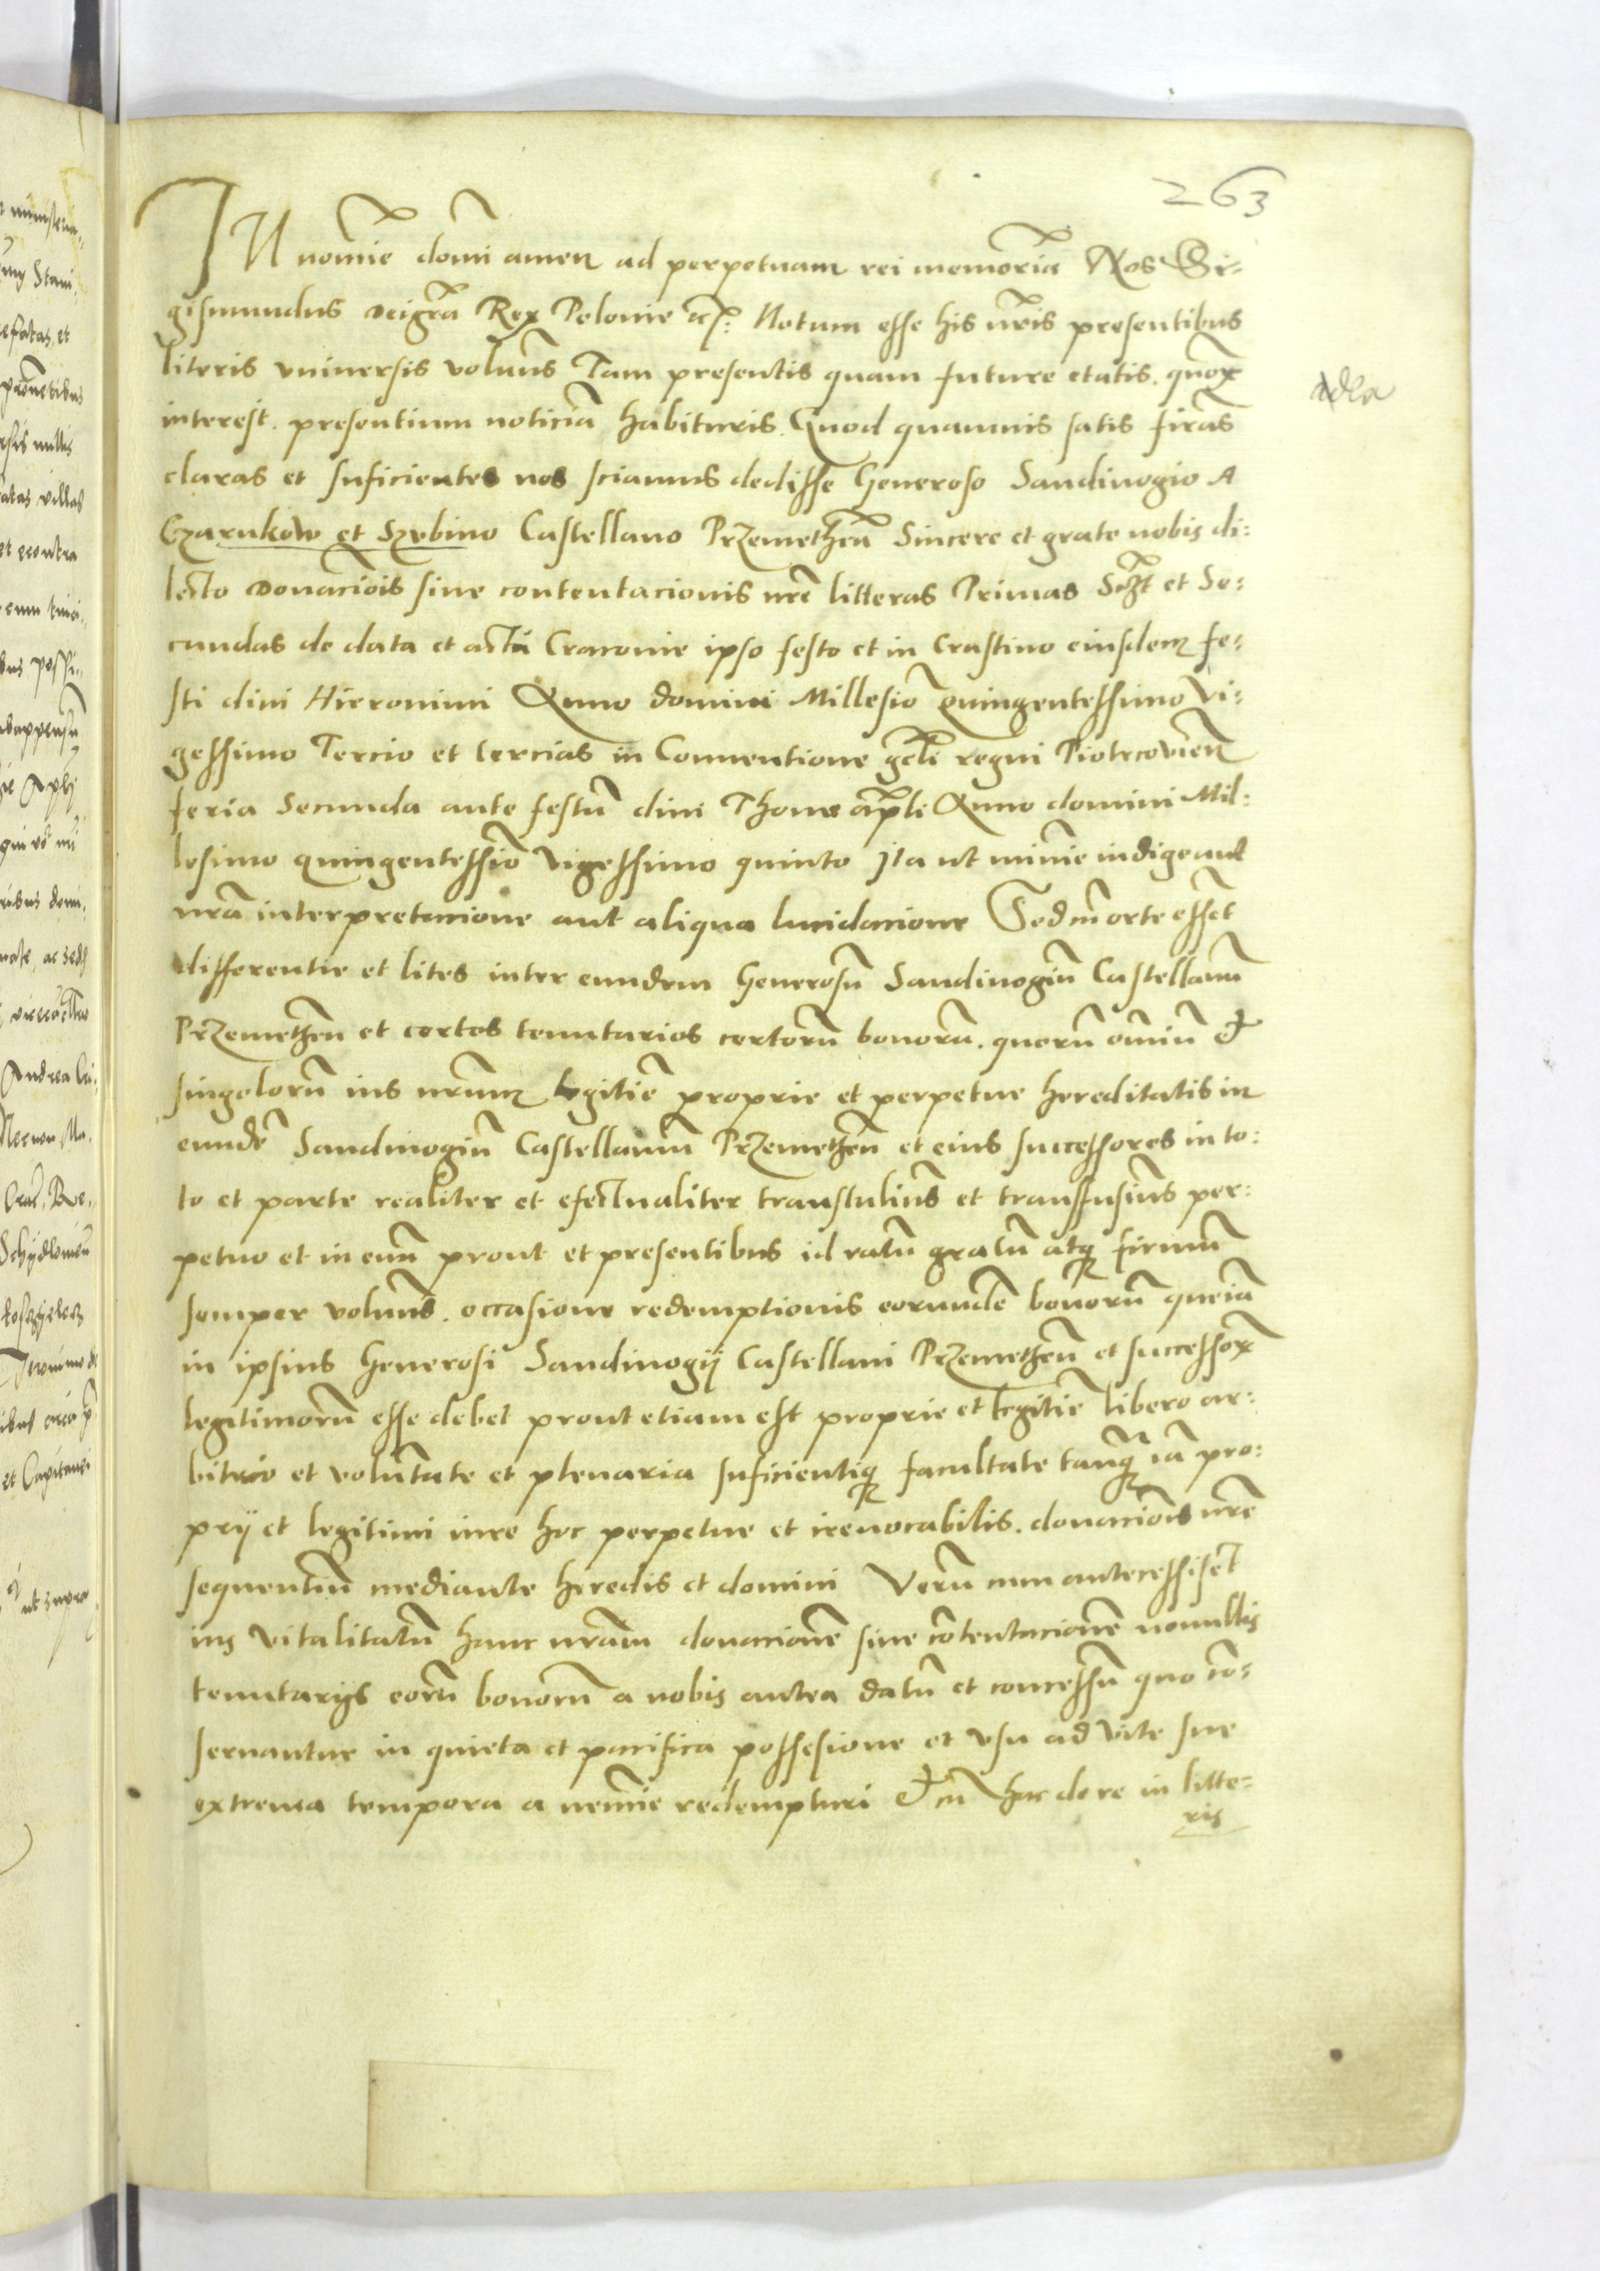 263
IN nomie domi amen ad perpetuam rei memoria Nos Si-
gismundus deigra Rex Polonie etc. Notum esse his nris presentibus
literis vniuersis volums Tam presentis quam future etatis. quox
interest. presentium noticia habituris. Quod quamuis satis firas
claras et suficientes nos sciamus dedisse Generoso Sandiuogio A
Czarnkow et Szubino Castellano Przemethen Sincere et grate nobis di-
lecto donaciois siue contentacionis nre litteras Primas Sczt et Se-
cundas de data et actu Cracouie ipso festo et in Crastino eiusdem fe-
sti diui Hieronimi Anno domini Millesio quingentessimo Vi-
gessimo Tercio et tercias in Conuentione gnli regni Piotrcouien
feria Secunda ante festu diui Thome apli Anno domini Mil-
lesimo quingentessio Vigessimo quinto Ita ut minie indigeant
nra interpretacione aut aliqua lucidacione Sed orte essent
differentie et lites inter eundem Generosu Sandiuogiu Castellanu
Przemethen et certos tenutarios certoru bonoru. quoru omniu &
singoloru ius nrum legitie proprie et perpetue hereditatis in
eunde Sandiuogiu Castellanum Przemethen et eius successores in to-
to et parte realiter et efectualiter transtulims et transfusims per-
petuo et in euu prout et presentibus id ratu gratu atq firmu
semper volums. occasione redemptionis eorunde bonoru que ia
in ipsius Generosi Sandiuogij Castellani Przemethen et successox
legitimoru esse debet prout etiam est proprie et legitie libero ar-
bitrio et voluntate et plenaria suficientiq facultate tanq ia pro-
prij et legitimi iure hoc perpetue et ireuocabilis. donaciois nre
sequentiu mediante heredis et domini Veru cum antecessiset
ius Vitalitatu hanc nram donacione siue contentacione nonullis
tenutarijs eoru bonoru a nobis antea datu et concessu quo co-
seruantur in quieta et pacifica possesione et vsu ad Vite sue
extrema tempora a nemie redempturi & cu hac de re in litte-
ris